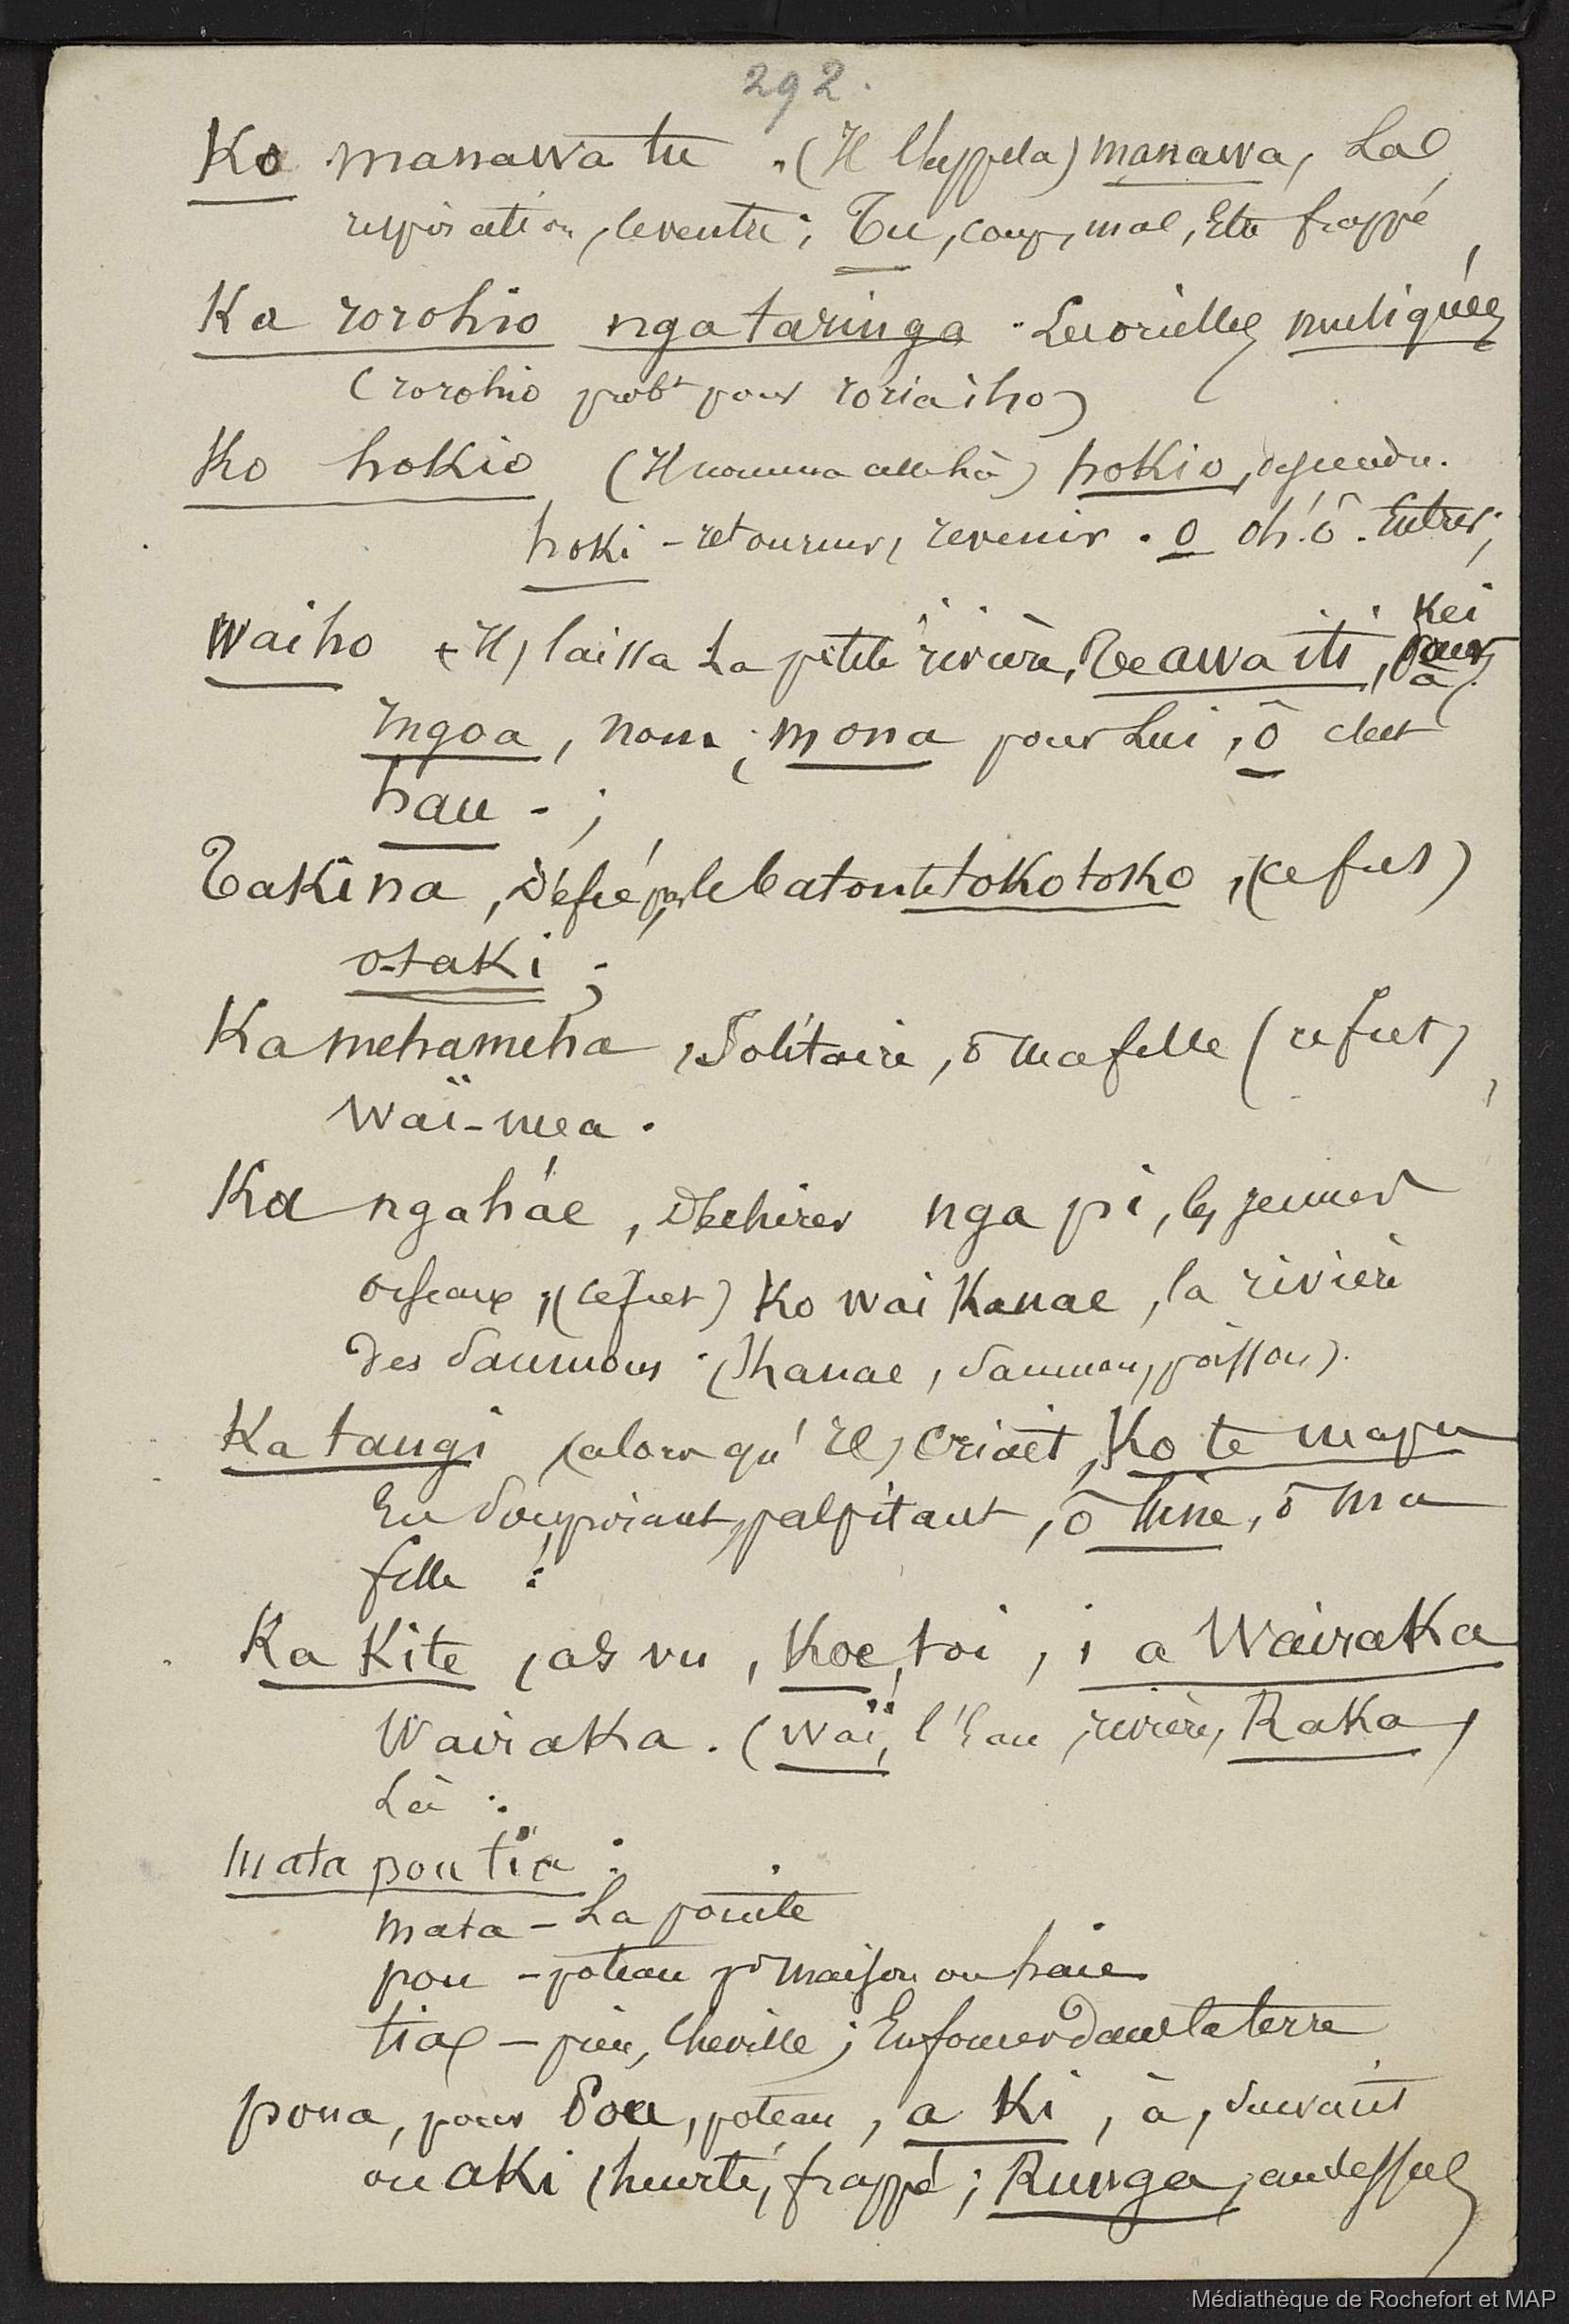 292.
Ko manawatu . (Il l'appela) manawa, La
respiration, le ventre; Tu, coup, mal, Etre frappé,
Ka rorohio ngataringa . Les oreilles
(rorohio probt pour roriaiho)
Ko hokio (Il nomma cella là) hokio, descendu.
hoki - retourner, revenir . o oh! ô . Entrer;
Waiho (Il) laissa La petite rivière, Te awa iti, Kei
à)
Ingoa, nom; mona pour Lui, ô c'est
hau - ;
Takina, Défié, par le baton te tokotoko, (ce fut)
otaki ;
Kamehameha, Solitaire, ô ma fille (ce fut),
Waï-mea .
Ka ngahae, déchirer nga pi, les jeunes
oiseaux, (ce fut) Ko wai Kanae, la rivière
des Saumons . (Kanae, Saumon, poisson).
Ka tangi (alors qu'Il) criait, Ko te mapu
En Soupirant, palpitant, ô hine, ô ma
fille :
Ka Kite, as vu, Koe, toi, i a Wairaka
Wairaka . (Waï, l'Eau, rivière, Raka,
Là :
mata pou tïa :
mata - La pointe
pou - poteau pr maison ou haie
tia - pieu, Cheville; Enfoncer dans la terre
poua, pour Pou, poteau, a Ki, à, suivant
ou aki, heurté, frappé; Runga, au dessus
Médiathèque de Rochefort et MAP